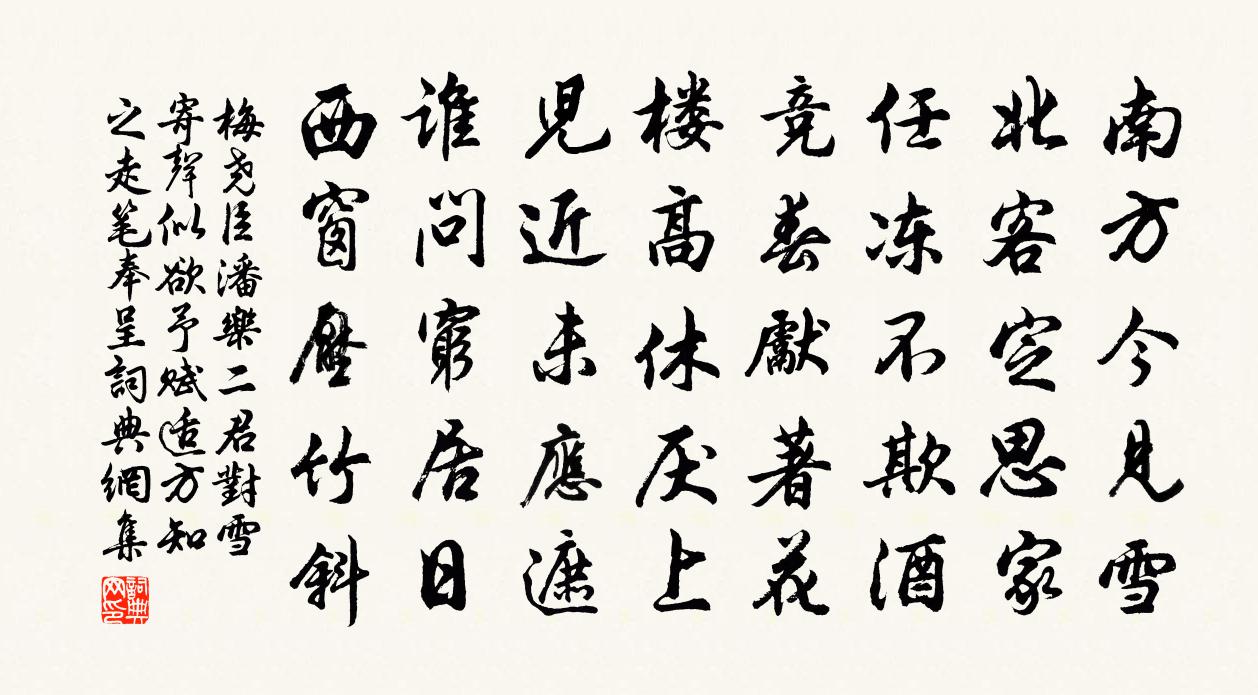 南方今見雪
北客定思家
任冻不欺酒
竞春獻著花
楼高休厌上
兒近未應遮
誰問窮居日
西窗壓竹斜
梅尧臣潘樂二君對雪
寄聲似欲予赋适方知
之走笔奉呈詞典網集